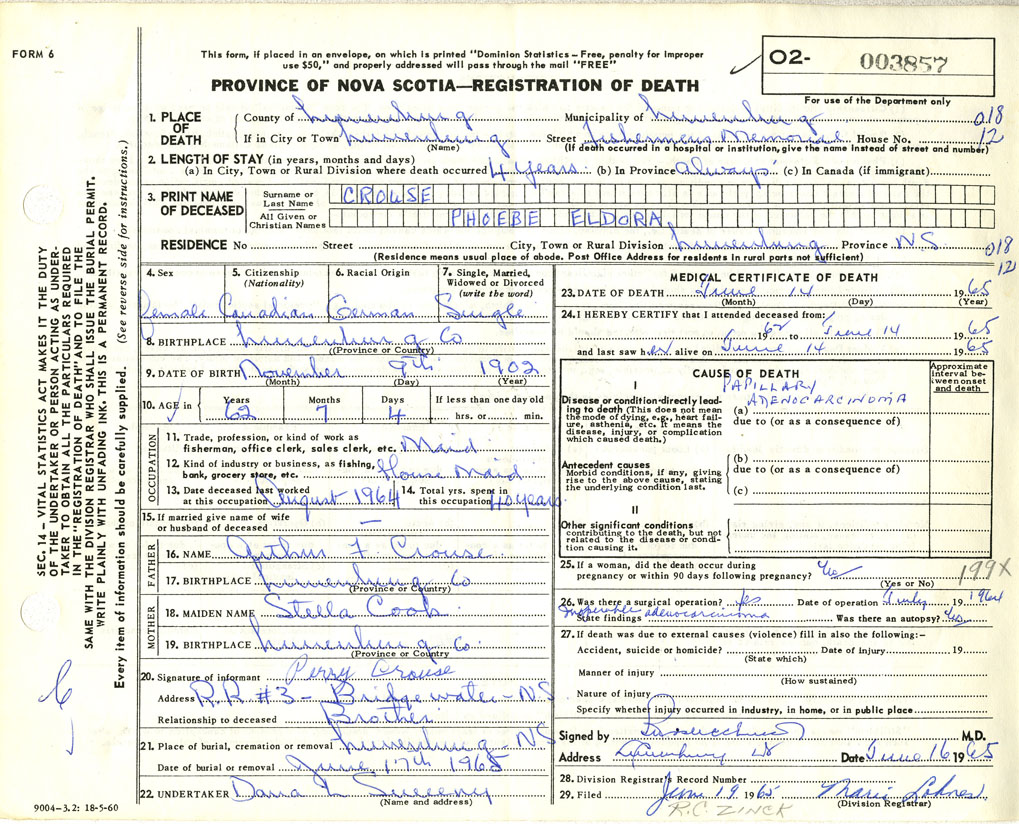 FORM 6
This form, if placed in an envelope, on which is printed "Dominion Statistics – Free, penalty for improper
use $50," and properly addressed will pass through the mail "FREE"
PROVINCE OF NOVA SCOTIA—REGISTRATION OF DEATH
O2- 003857
For use of the Department only
1. PLACE OF DEATH
County of Lunenburg Municipality of Lunenburg 018
If in City or Town Lunenburg Street Fishermens Memorial House No. 12
(Name) (If death occurred in a hospital or institution, give the name instead of street and number)
2. LENGTH OF STAY (in years, months and days)
(a) In City, Town or Rural Division where death occurred 4 years (b) In Province always (c) In Canada (if immigrant)
3. PRINT NAME OF DECEASED
Surname or Last Name CROUSE
All Given or Christian Names PHOEBE ELDORA
RESIDENCE No Street City, Town or Rural Division Lunenburg Province NS 018
(Residence means usual place of abode. Post Office Address for residents in rural parts not sufficient) 12
4. Sex 5. Citizenship (Nationality) 6. Racial Origin 7. Single, Married, Widowed or Divorced (write the word)
Female Canadian German Single
8. BIRTHPLACE Lunenburg Co
(Province or Country)
9. DATE OF BIRTH November 9th 1902
(Month) (Day) (Year)
10. AGE in Years Months Days If less than one day old
62 7 4 hrs. or min.
OCCUPATION
11. Trade, profession, or kind of work as
fisherman, office clerk, sales clerk, etc. Maid
12. Kind of industry or business, as fishing,
bank, grocery store, etc. House Maid
13. Date deceased last worked
at this occupation August 1964
14. Total yrs. spent in
this occupation 40 years
15. If married give name of wife
or husband of deceased —
FATHER
16. NAME Arthur F Crouse
17. BIRTHPLACE Lunenburg Co
(Province or Country)
MOTHER
18. MAIDEN NAME Stella Cook
19. BIRTHPLACE Lunenburg Co.
(Province or Country
20. Signature of informant Perry Crouse
Address R.R #3 – Bridgewater – NS
Relationship to deceased Brother
21. Place of burial, cremation or removal Lunenburg NS
Date of burial or removal June 17th 1965
22. UNDERTAKER Dana L Sweeny
(Name and address)
9004–3.2: 18-5-60
MEDICAL CERTIFICATE OF DEATH
23. DATE OF DEATH June 14 1965
(Month) (Day) (Year)
24. I HEREBY CERTIFY that I attended deceased from:
1962 to June 14 1965
and last saw her alive on June 14 1965
CAUSE OF DEATH
Approximate interval between onset and death
I
Disease or condition directly leading to death (This does not mean the mode of dying, e.g., heart failure, asthenia, etc. It means the disease, injury, or complication which caused death.)
PAPILLARY
ADENOCARCINOMA
(a)
due to (or as a consequence of)
Antecedent causes
Morbid conditions, if any, giving rise to the above cause, stating the underlying condition last.
(b)
due to (or as a consequence of)
(c)
II
Other significant conditions
contributing to the death, but not related to the disease or condition causing it.
25. If a woman, did the death occur during
pregnancy or within 90 days following pregnancy? No
(Yes or No)
199X
26. Was there a surgical operation? yes Date of operation 1964
State findings Inoperable adenocarcinoma Was there an autopsy? No
27. If death was due to external causes (violence) fill in also the following:–
Accident, suicide or homicide? Date of injury 19
(State which)
Manner of injury
(How sustained)
Nature of injury
Specify whether injury occurred in industry, in home, or in public place
Signed by M.D.
Address Lunenburg NS Date June 16 1965
28. Division Registrar's Record Number
29. Filed June 19 1965 Marie Lohnes
(Division Registrar)
R.C. ZINCK
SEC. 14 – VITAL STATISTICS ACT MAKES IT THE DUTY
OF THE UNDERTAKER OR PERSON ACTING AS UNDER-
TAKER TO OBTAIN ALL THE PARTICULARS REQUIRED
IN THE "REGISTRATION OF DEATH" AND TO FILE THE
SAME WITH THE DIVISION REGISTRAR WHO SHALL ISSUE THE BURIAL PERMIT.
WRITE PLAINLY WITH UNFADING INK. THIS IS A PERMANENT RECORD.
Every item of information should be carefully supplied. (See reverse side for instructions.)